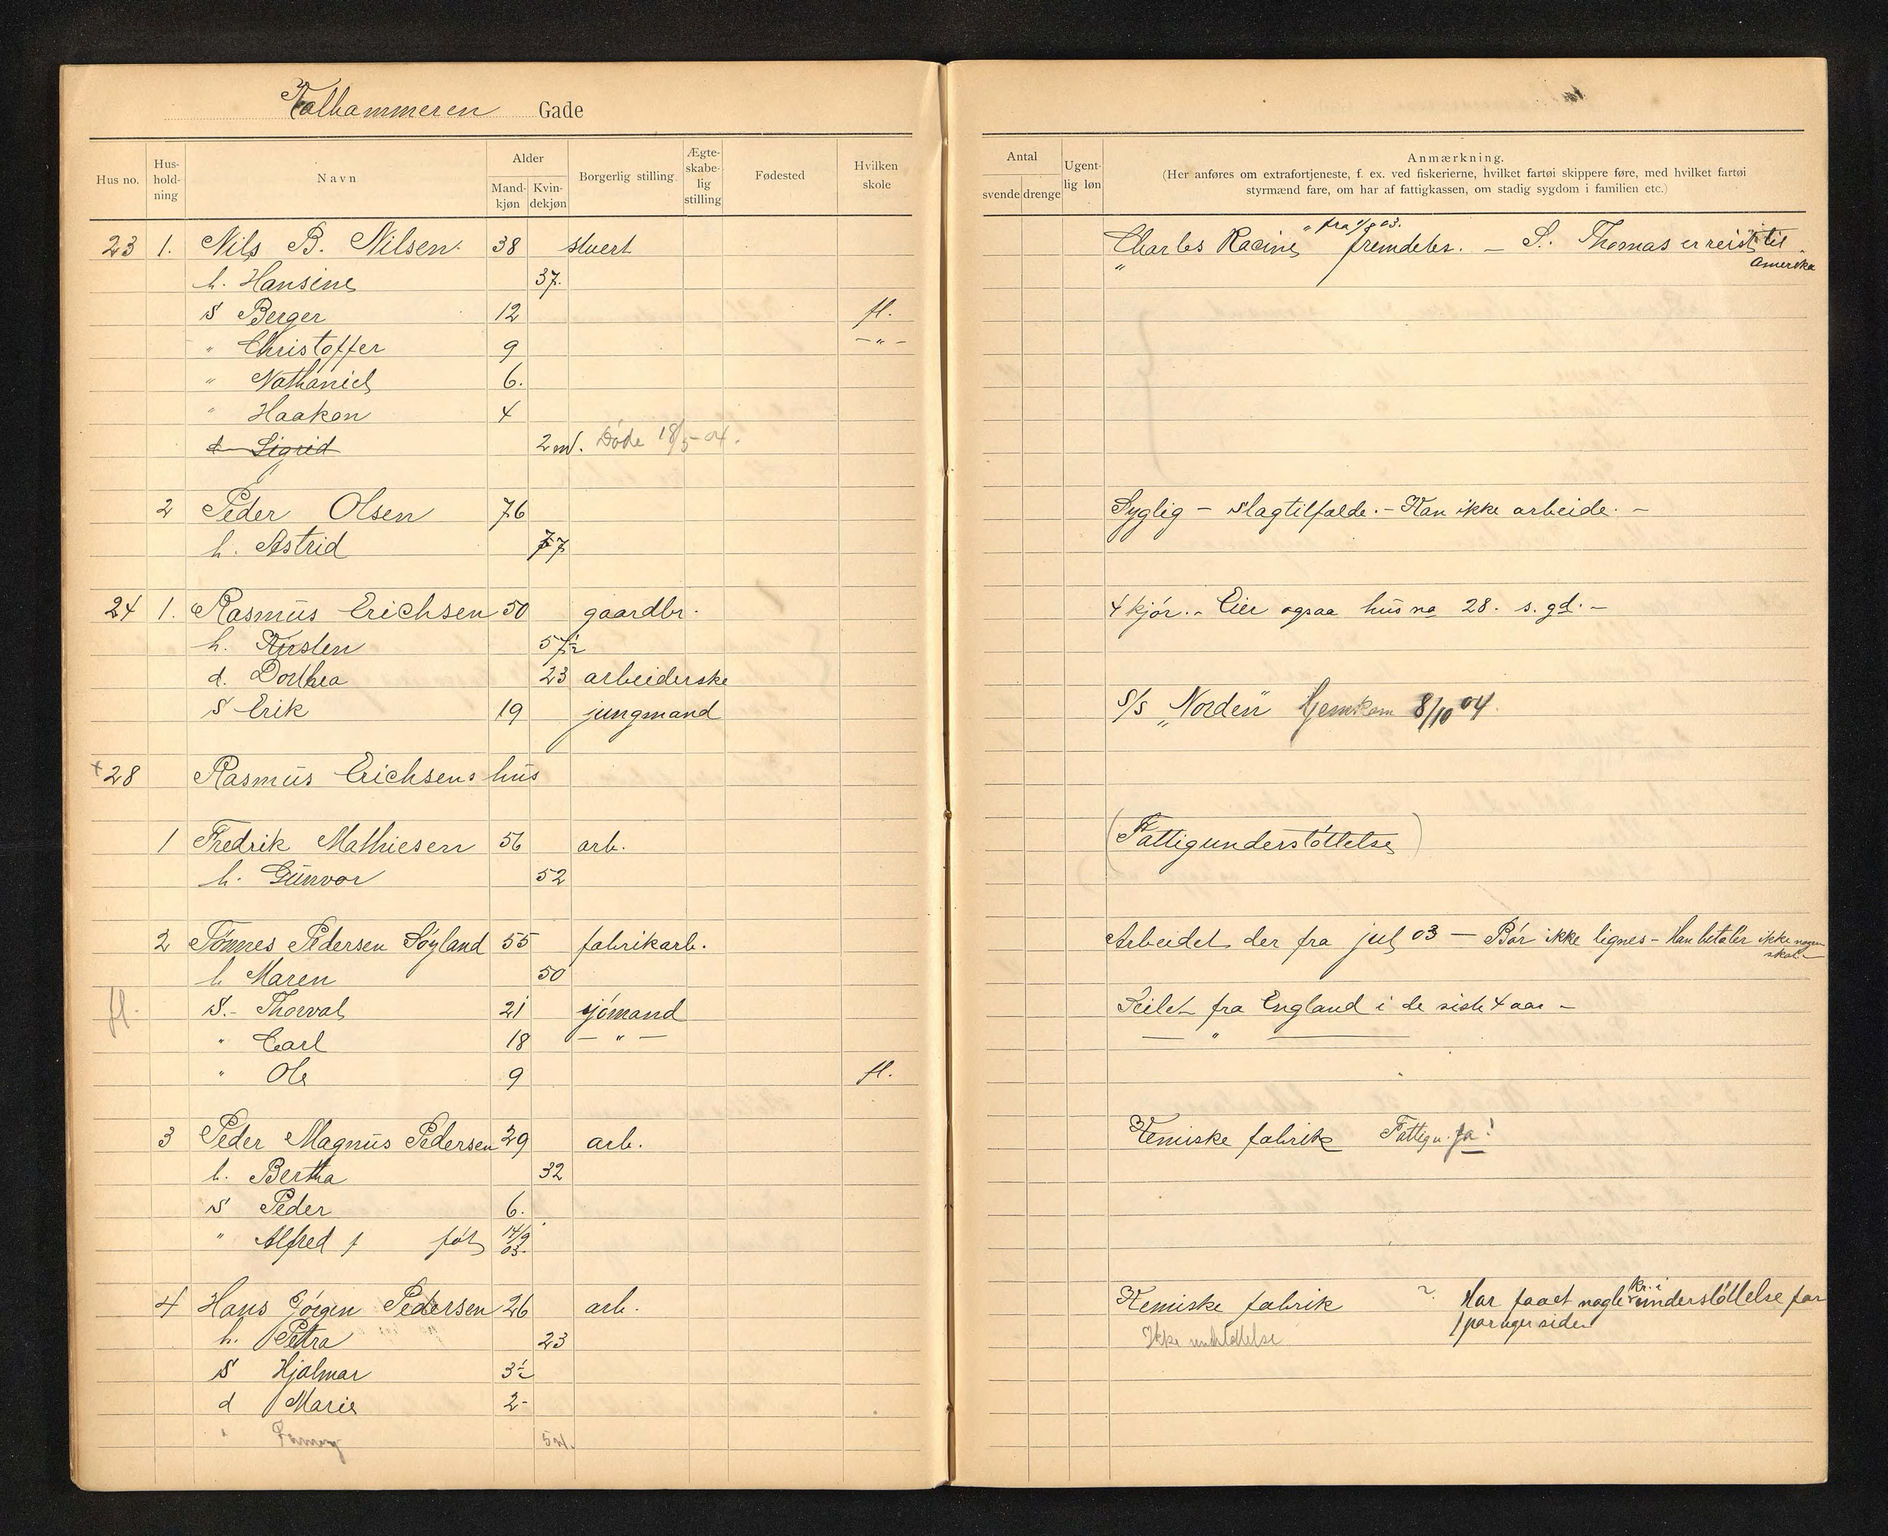 Kalhammeren Gade
Hus no. Hus-hold-ning Navn Alder Mand-kjøn Kvin-dekjøn Borgerlig stilling Ægte-skabe-lig stilling Fødested Hvilken skole
23 1. Nils B. Nilsen. 38 stuert
h. Hansine 37.
S Berger 12 fl.
" Christoffer 9 – " –
" Nathaniel 6.
" Haakon 4
d Sigrid 2 m. Døde 18/5 - 04.
2 Peder Olsen 76
h. Astrid 77
24 1. Rasmus Erichsen 50 gaardbr.
h. Kirsten 57½
d. Dorthea 23 arbeiderske
S Erik 19 jungmand
+28 Rasmus Erichsens hus
1 Fredrik Mathiesen 56 arb.
h. Gunvor 52
2 Tønnes Pedersen Søyland 55 fabrikarb.
h Maren 50
fl. S. - Thorval 21 sjømand
" Carl 18 – " –
" Ole 9 fl.
3 Peder Magnus Pedersen 29 arb.
h. Bertha 32
S Peder 6.
" Alfred f føt 14/9 03.
4 Hans Jørgen Pedersen 26 arb.
h. Petra 23
S Hjalmar 3½
d Marie 2 -
" 5 m.
Antal svende drenge Ugent-lig løn Anmærkning.
(Her anføres om extrafortjeneste, f. ex. ved fiskerierne, hvilket fartøi skippere føre, med hvilket fartøi
styrmænd fare, om har af fattigkassen, om stadig sygdom i familien etc.)
" fra 1/8 03.
"Charles Racine" fremdeles. – S. Thomas er reist til Amerika
Syglig – slagtilfælde. – Kan ikke arbeide. –
4 kjør. – Eier ogsaa hus no 28. s. gd. –
S/s "Norden" Hjemkom 8/10 04
(Fattigunderstøttelse)
Arbeidet der fra jul 03 – Bør ikke lignes – Han betaler ikke nogen skat –
Seilet fra England i de siste 4 aar –
— " —
Kemiske fabrik Fattigu. ja!
Kemiske fabrik ? Har faaet nogle kr. i understøttelse for
Ikke understøttelse
et par uger siden